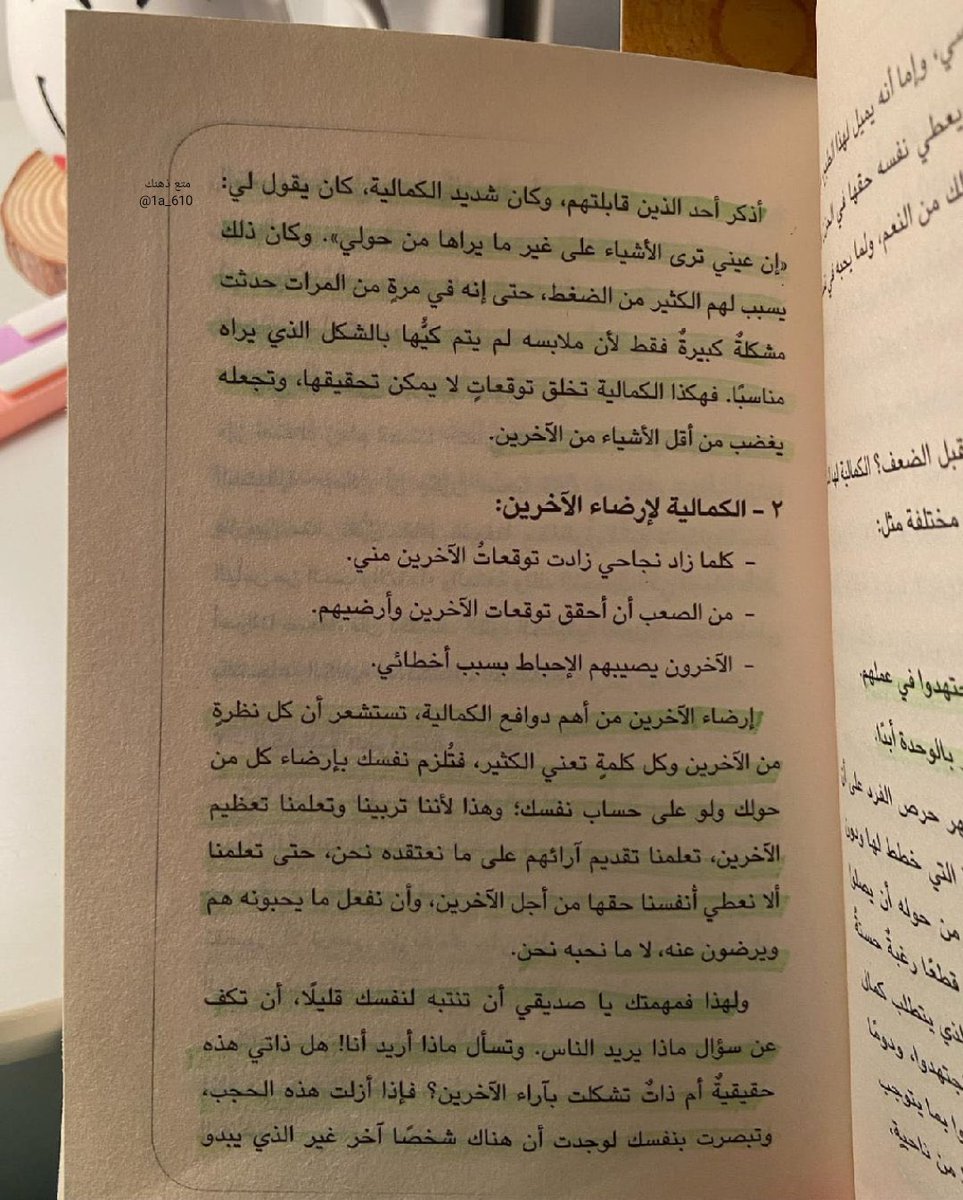 متع ذهنك
@1a_610
أذكر أحد الذين قابلتهم، وكان شديد الكمالية، كان يقول لي:
«إن عيني ترى الأشياء على غير ما يراها من حولي». وكان ذلك
يسبب لهم الكثير من الضغط، حتى إنه في مرةٍ من المرات حدثت
مشكلةٌ كبيرةٌ فقط لأن ملابسه لم يتم كيُّها بالشكل الذي يراه
مناسبًا. فهكذا الكمالية تخلق توقعاتٍ لا يمكن تحقيقها، وتجعله
يغضب من أقل الأشياء من الآخرين.
٢ - الكمالية لإرضاء الآخرين:
- كلما زاد نجاحي زادت توقعاتُ الآخرين مني.
- من الصعب أن أحقق توقعات الآخرين وأرضيهم.
- الآخرون يصيبهم الإحباط بسبب أخطائي.
إرضاء الآخرين من أهم دوافع الكمالية، تستشعر أن كل نظرةٍ
من الآخرين وكل كلمةٍ تعني الكثير، فتُلزم نفسك بإرضاء كل من
حولك ولو على حساب نفسك؛ وهذا لأننا تربينا وتعلمنا تعظيم
الآخرين، تعلمنا تقديم آرائهم على ما نعتقده نحن، حتى تعلمنا
ألا نعطي أنفسنا حقها من أجل الآخرين، وأن نفعل ما يحبونه هم
ويرضون عنه، لا ما نحبه نحن.
ولهذا فمهمتك يا صديقي أن تنتبه لنفسك قليلًا، أن تكف
عن سؤال ماذا يريد الناس. وتسأل ماذا أريد أنا! هل ذاتي هذه
حقيقيةٌ أم ذاتٌ تشكلت بآراء الآخرين؟ فإذا أزلت هذه الحجب،
وتبصرت بنفسك لوجدت أن هناك شخصًا آخر غير الذي يبدو
وإما أنه يميل لهذا
يعطي نفسه حقها في
لك من النعم، ولما يحبه في
الضعف؟ الكمالية لها
مختلفة مثل:
في عملهم
بالوحدة أبدًا.
حرص الفرد على أن
التي خطط لها ودون
من حوله أن يصلوا
قطعًا رغبةٌ حسنةٌ
يتطلب كمال
ودومًا
بما يتوجب
من ناحية،